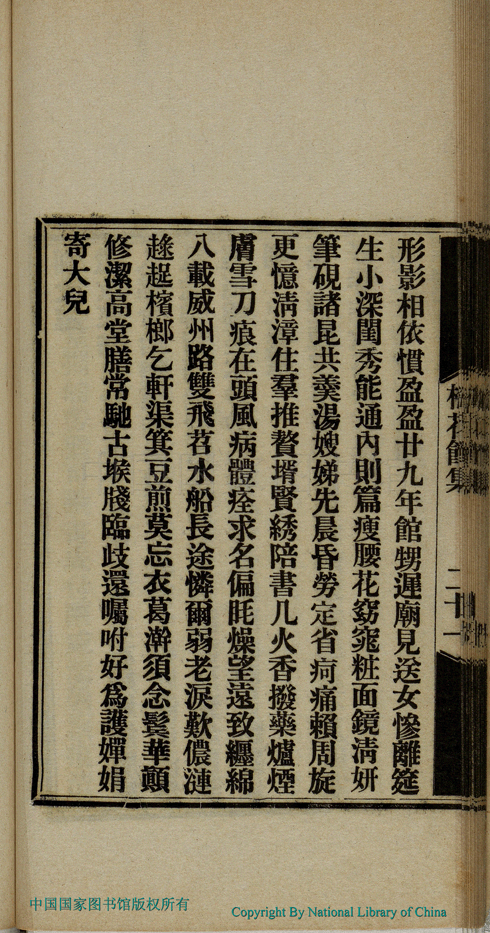 形影相依慣盈盈廿九年館甥遲廟見送女慘離筵
生小深閨秀能通內則篇瘦腰花窈窕粧面鏡淸妍
筆硯諸昆共羹湯嫂娣先晨昏勞定省疴痛賴周旋
更憶淸漳住羣推贅壻賢綉陪書几火香撥藥爐煙
膚雪刀痕在頭風病體痊求名偏眊燥望遠致纏綿
八載威州路雙飛苕水船長途憐爾弱老淚歎儂漣
趑趄檳榔乞軒渠箕豆煎莫忘衣葛澣須念鬢華顚
修潔高堂膳常馳古堠牋臨歧還囑咐好爲護嬋娟
寄大兒
梅花館集
二十一
中国国家图书馆版权所有
Copyright By National Library of China